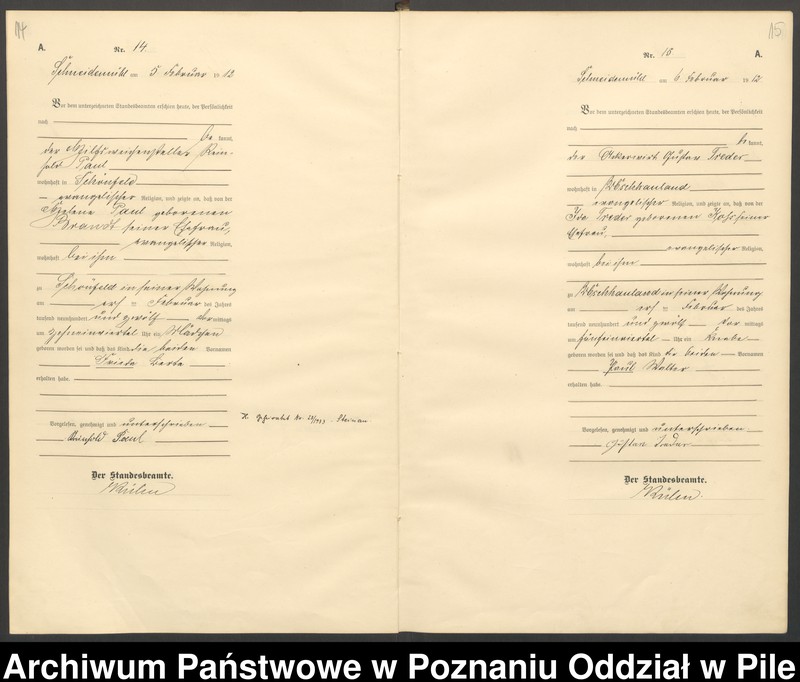 14
A.
Nr. 14
Schneidemühl am 5 Februar 1912
Vor dem unterzeichneten Standesbeamten erschien heute, der Persönlichkeit
nach
be kannt,
der Hilfsweichensteller Rein-
hold Paul
wohnhaft in Schönfeld
evangelischer Religion, und zeigte an, daß von der
Helene Paul geborenen
Brandt seiner Ehefrau,
evangelischer Religion,
wohnhaft bei ihm
zu Schönfeld in seiner Wohnung
am ersten Februar des Jahres
tausend neunhundert und zwölf Vor mittags
um zehneinviertel Uhr ein Mädchen
geboren worden sei und daß das Kind die beiden Vornamen
Frieda Berta
erhalten habe.
Vorgelesen, genehmigt und unterschrieben
Reinhold Paul
Der Standesbeamte.
Nr.
15
Nr. 15
A.
Schneidemühl am 6 Februar 1912
Vor dem unterzeichneten Standesbeamten erschien heute, der Persönlichkeit
nach
be kannt,
der Ackerwirt Gustav Treder
wohnhaft in
evangelischer Religion, und zeigte an, daß von der
Ida Treder geborenen seiner
Ehefrau,
evangelischer Religion,
wohnhaft bei ihm
zu in seiner Wohnung
am ersten Februar des Jahres
tausend neunhundert und zwölf Vor mittags
um fünfeinviertel Uhr ein Knabe
geboren worden sei und daß das Kind die beiden Vornamen
Paul Walter
erhalten habe.
Vorgelesen, genehmigt und unterschrieben
Gustav Treder
Der Standesbeamte.
Archiwum Państwowe w Poznaniu Oddział w Pile